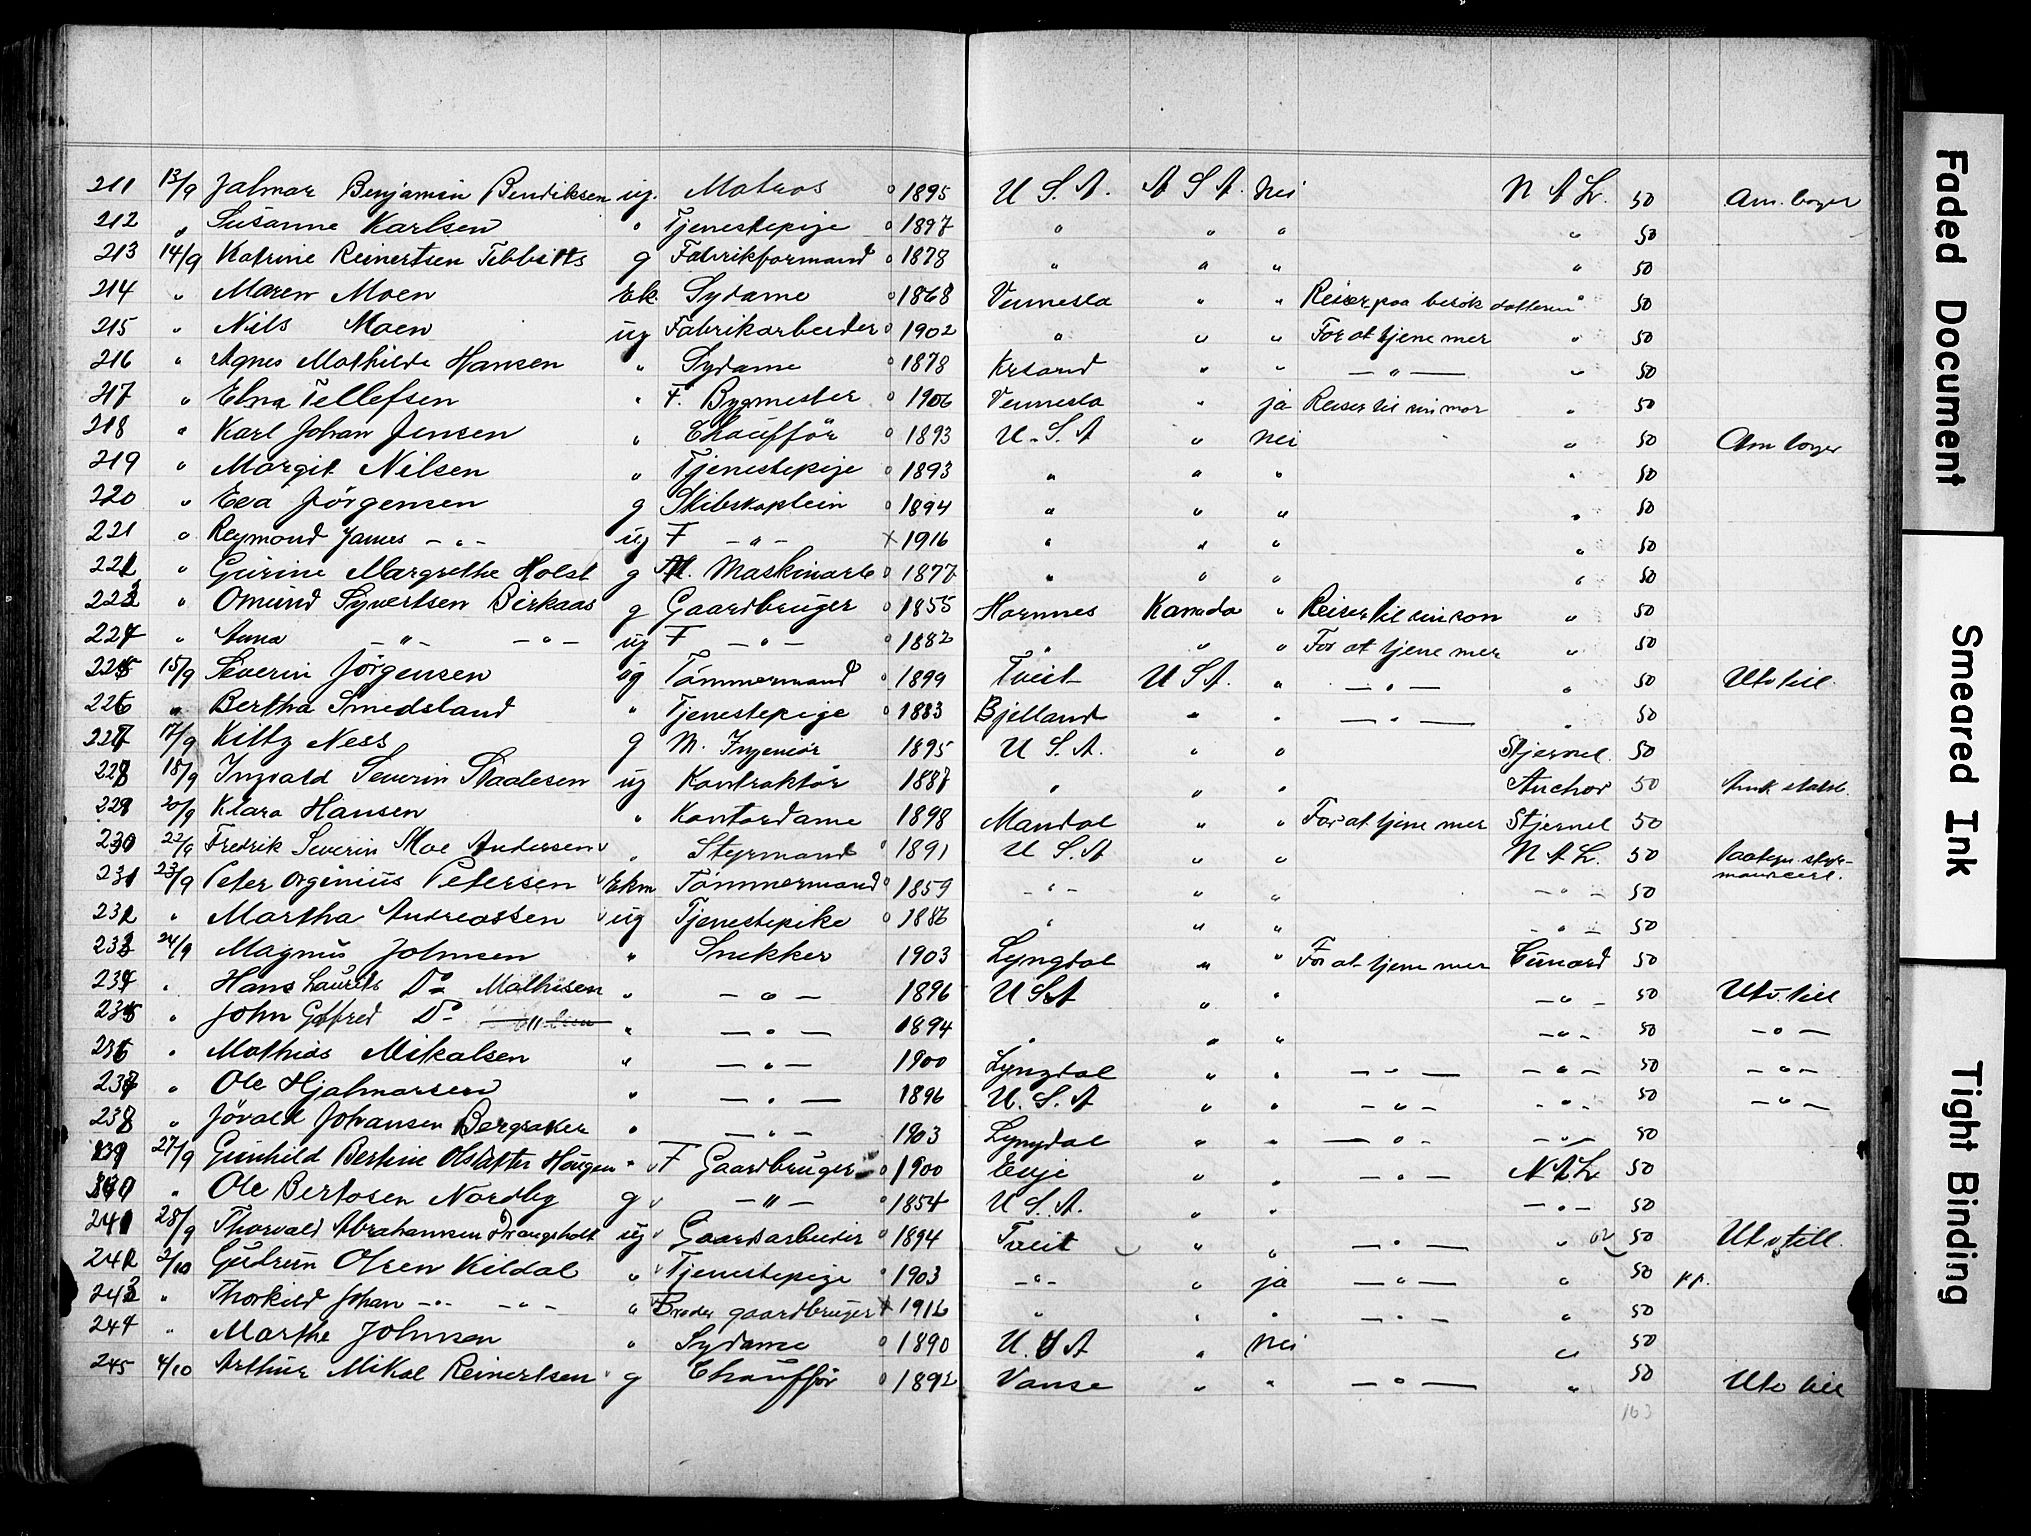 211 13/9 Jalmar Benjamin Bendriksen ug. Matros o 1895 U. S. A. A S A. Nei N A L. 50 Am. borger
212 „ Susanne Karlsen „ Tjenestepige o 1897 „ „ „ „ 50
213 14/9 Katrine Reinertsen Tibbitts g Fabrikformand o 1878 „ „ „ „ 50
214 „ Maren Moen Ek. Sydame o 1868 Vennesla „ „ Reiser paa besøk datteren „ 50
215 „ Nils Moen ug Fabrikarbeider o 1902 „ „ „ For at tjene mer „ 50
216 „ Agnes Mathilde Hansen „ Sydame o 1878 Krsand „ „ — „ — „ 50
217 „ Elna Tellefsen „ F. Bygmester o 1906 Vennesla „ ja Reiser til sin mor „ 50
218 „ Karl Johan Jensen „ Chaufför o 1893 U. S. A „ Nei „ 50 Am borger
219 „ Margit Nilsen „ Tjenestepige o 1893 „ „ „ „ 50
220 „ Eva Jörgensen g Skibskaptein o 1894 „ „ „ „ 50
221 „ Reymond James — „ — ug F — „ — x 1916 „ „ „ „ 50
222 „ Gurine Margrethe Holst g M. Maskinarb o 1877 „ „ „ „ 50
223 „ Omund Syvertsen Birkaas g Gaardbruger o 1855 Hornnes Kanada „ Reiser til sin son „ 50
224 „ Anna — „ — — „ — ug F — „ — o 1882 „ „ „ For at tjene mer „ 50
225 15/9 Severin Jörgensen ug Tömmermand o 1899 Tveit U S A. „ — „ — „ 50 Utv till
226 „ Bertha Smedsland „ Tjenestepige o 1883 Bjelland „ „ — „ — „ 50
227 17/9 Kitty Ness g M. Ingeniör 1895 U S. A. „ „ Stjernel. 50
228 18/9 Ingvald Severin Staalesen ug Kontraktör 1887 „ „ „ Anchor 50
229 20/9 Klara Hansen „ Kontordame 1898 Mandal „ „ For at tjene mer Stjernel 50
230 22/9 Fredrik Severin Moe Andersen „ Styrmand o 1891 U S. A „ „ N A L. 50
231 23/9 Peter Orginius Petersen Ekm Tömmermand o 1859 — „ — „ „ — „ — 50
232 „ Martha Andreassen ug Tjenestepike o 1886 „ „ „ — „ — 50
233 24/9 Magnus Johnsen „ Snekker 1903 Lyngdal „ „ For at tjene mer Cunard 50
234 „ Hans Laurits Do Mathisen „ — „ — 1896 U S A „ „ — „ — 50 Utv. till
235 „ John Gotfred Do „ — „ — 1894 „ „ „ — „ — 50 — „ —
236 „ Mathias Mikalsen „ — „ — 1900 Lyngdal „ „ — „ — — „ — 50 — „ —
237 „ Ole Hjalmarsen „ — „ — 1896 U. S. A „ „ — „ — — „ — 50 — „ —
238 „ Jövald Johansen Bergsaker „ — „ — 1903 Lyngdal „ „ — „ — — „ — 50
239 27/9 Gunhild Bertine Olsdatter Haugen „ F Gaardbruger o 1900 Evje „ „ — „ — N A L 50
240 „ Ole Bertosen Nordby g — „ — o 1854 U. S. A. „ „ — „ — 50
241 28/9 Thorvald Abrahamsen Drangsholt ug Gaardsarbeider o 1894 Tveit „ „ — „ — „ 50 Utv till.
242 2/10 Gudrun Olsen Kildal „ Tjenestepige o 1903 — „ — „ ja — „ — „ 50
243 „ Thorkild Johan — „ — — „ — „ Broder gaardbruger x 1916 „ „ „ — „ — „ 50
244 „ Marthe Johnsen „ Sydame o 1890 U. S A „ Nei „ 50
245 4/10 Arthur Mikal Reinertsen g Chaufför o 1892 Vanse „ „ — „ — „ 50 Utv till
163
Faded Document
Smeared Ink
Tight Binding